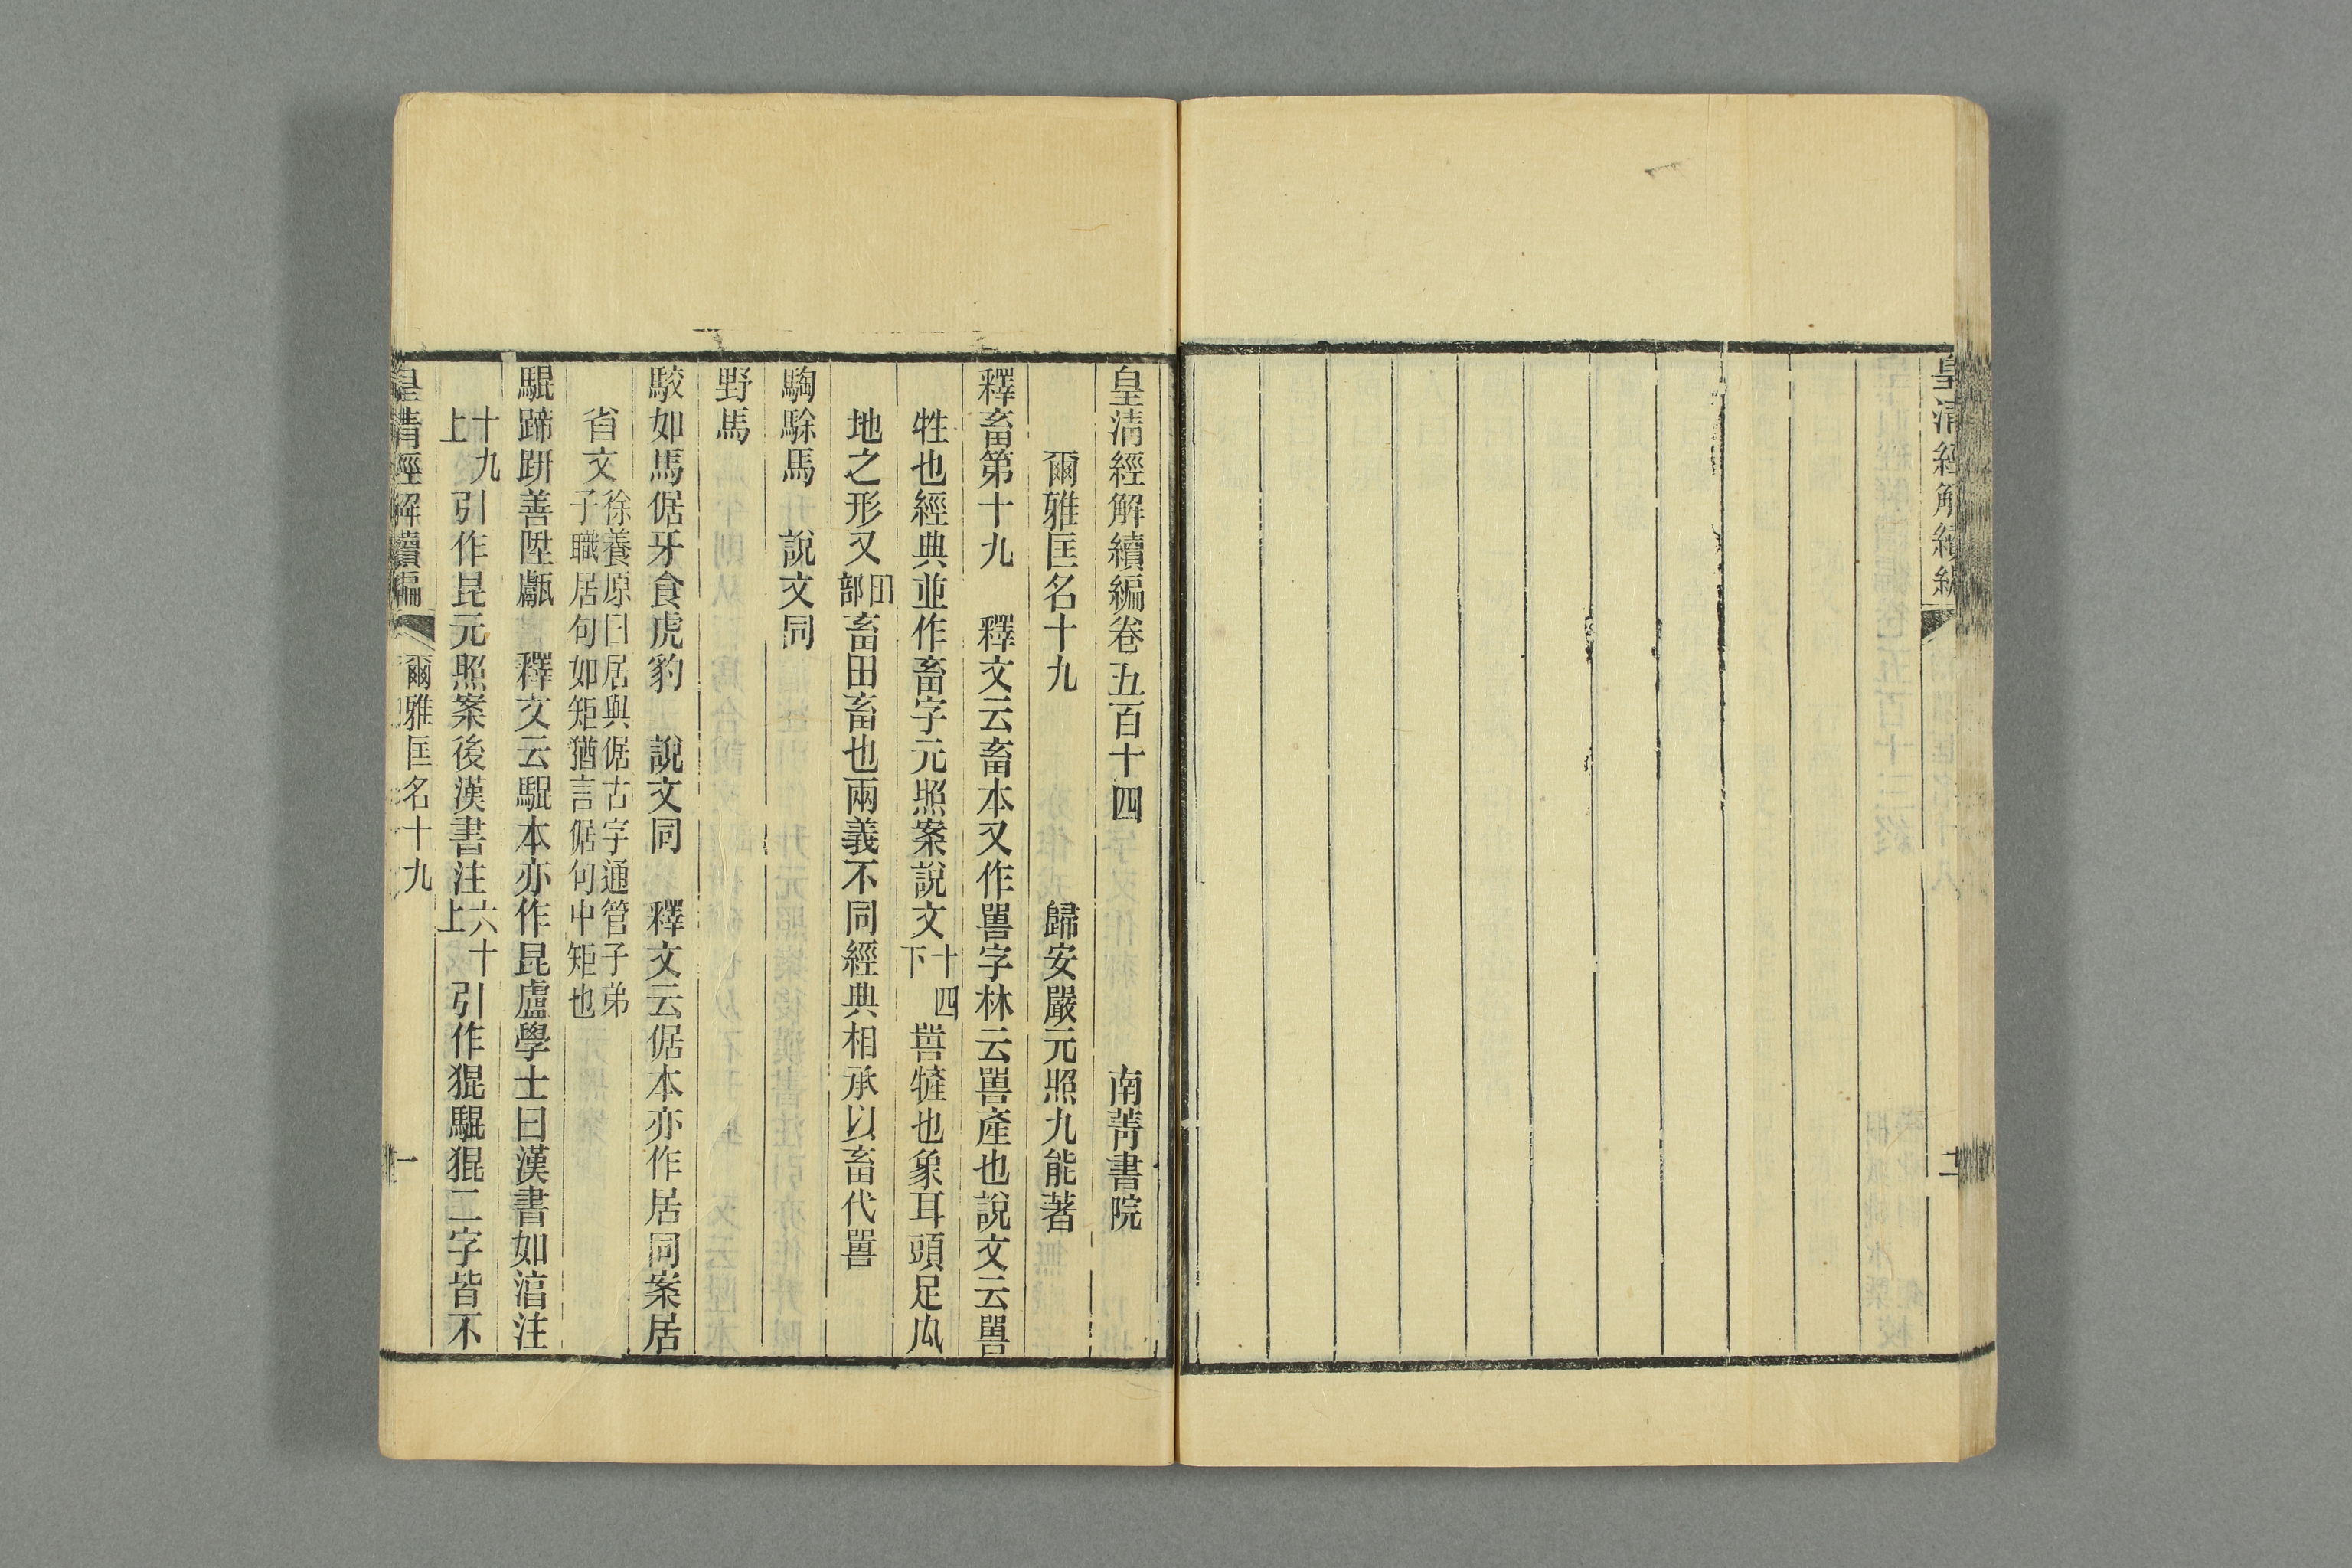 皇清經解續編
二
皇清經解續編卷五百十四 南菁書院
爾雅匡名十九 歸安嚴元照九能著
釋畜第十九 釋文云畜本又作嘼字林云嘼產也說文云嘼
牲也經典並作畜字元照案說文十四下嘼㹌也象耳頭足厹
地之形又田部畜田畜也兩義不同經典相承以畜代嘼
騊駼馬 說文同
野馬
駮如馬倨牙食虎豹 說文同 釋文云倨本亦作居同案居
省文徐養原曰居與倨古字通管子弟子職居句如矩猶言倨句中矩也
騉蹄趼善陞甗 釋文云騉本亦作昆盧學士曰漢書如湻注
十九上引作昆元照案後漢書注六十上引作猑騉猑二字皆不
皇清經解續編 爾雅匡名十九 一